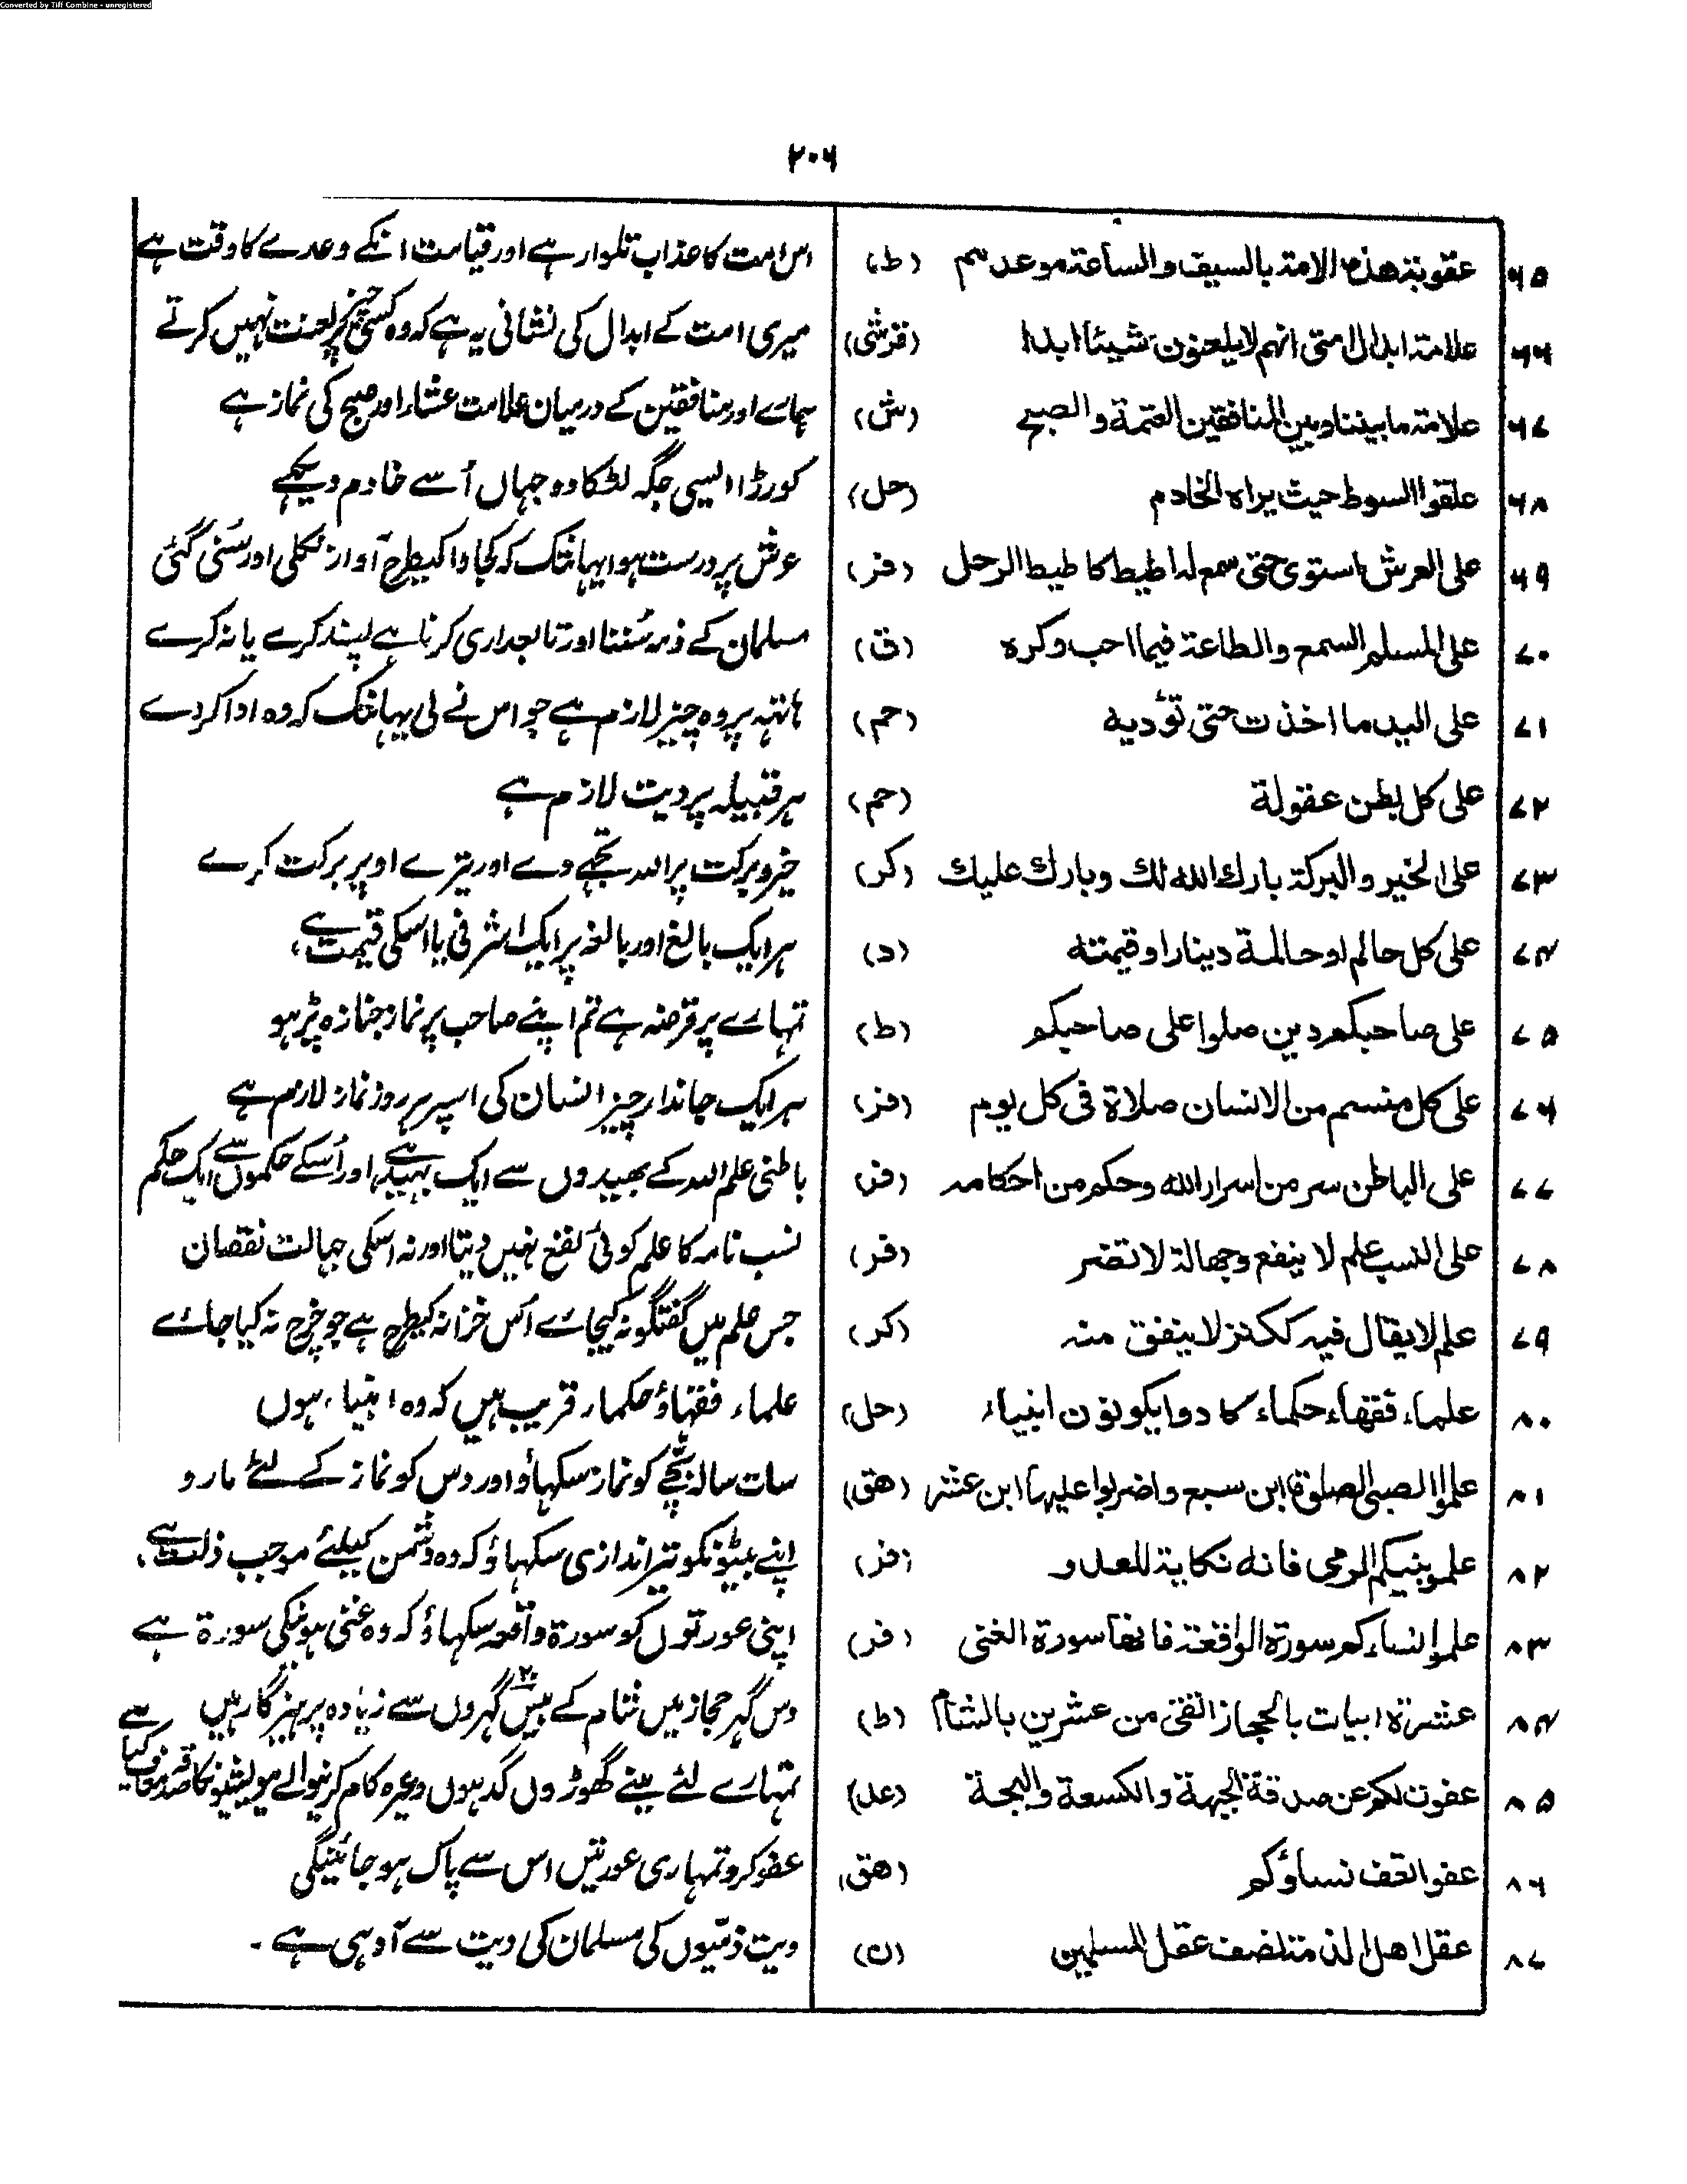 Converted by Tiff Combine - unregistered
۲۰۶
۶۵ عقوبة هذه الامة بالسيف والساعة موعدهم (ط) اس امت کا عذاب تلوار ہے اور قیامت انکے وعدے کا وقت ہے
۶۶ علامة ابدال امتی انهم لا يلعنون شيئا ابدا (قرشی) میری امت کے ابدال کی نشانی یہ ہے کہ وہ کسی چیز پر لعنت نہیں کرتے
۶۷ علامة ما بيننا وبين المنافقين العتمة والصبح (ش) ہمارے اور منافقین کے درمیان علامت عشاء اور صبح کی نماز ہے
۶۸ علقوا السوط حيث يراه الخادم (حل) کورڑا ایسی جگہ لٹکا دو جہاں اُسے خادم دیکھے
۶۹ على العرش استوى حتى سمع له اطيط كاطيط الرحل (فر) عرش پر درست ہوا یہانتک کہ کجاوا کیطرح آواز نکلی اور سُنی گئی
۷۰ على المسلم السمع والطاعة فيما احب وكره (ق) مسلمان کے ذمہ سُننا اور تابعداری کرنا ہے پسند کرے یا نہ کرے
۷۱ على اليد ما اخذت حتى تؤديه (حم) ہاتہہ پر وہ چیز لازم ہے جو اس نے لی یہانتک کہ وہ ادا کردے
۷۲ على كل بطن عقولة (حم) ہر قبیلہ پر دیت لازم ہے
۷۳ على الخير والبركة بارك الله لك وبارك عليك (كر) خیر و برکت پر اللہ تجہے دے اور تیرے اوپر برکت کرے
۷۴ على كل حالم او حالمة دينار او قيمته (د) ہر ایک بالغ اور بالغہ پر ایک اشرفی یا اسکی قیمت ہے،
۷۵ على صاحبكم دين صلوا على صاحبكم (ط) تمہارے پر قرضہ ہے تم اپنے صاحب پر نماز جنازہ پڑہو
۷۶ على كل منسم من الانسان صلاة فى كل يوم (فر) ہر ایک جاندار چیز انسان کی اسپر ہر روز نماز لازم ہے
۷۷ على الباطن سر من اسرار الله وحكم من احكامه (فر) باطنی علم اللہ کے بھیدوں سے ایک بہید ہے اور اُسکے حکموں سے ایک حکم
۷۸ على النسب علم لا ينفع وجهالة لا تضر (فر) نسب نامہ کا علم کوئی نفع نہیں دیتا اور نہ اسکی جہالت نقصان
۷۹ علم لا يقال فيه ككنز لا ينفق منه (كر) جس علم میں گفتگو نہ کیجاے اُس خزانہ کیطرح ہے جو خرچ نہ کیا جاے
۸۰ علماء فقهاء حكماء كادوا يكونون انبياء (حل) علماء فقہاؤ حکماء قریب ہیں کہ وہ انبیاء ہوں
۸۱ علموا الصبى الصلوة ابن سبع واضربوا عليها ابن عشر (هق) سات سالہ بچّے کو نماز سکہاؤ اور دس کو نماز کے لئے مارو
۸۲ علموا بنيكم الرمى فانه نكاية للعدو (فر) اپنے بیٹونکو تیر اندازی سکہاؤ کہ وہ دشمن کیلئے موجب ذلت ہے،
۸۳ علموا نساءكم سورة الواقعة فانها سورة الغنى (فر) اپنی عورتوں کو سورة واقعہ سکہاؤ کہ وہ غنی ہونیکی سورة ہے
۸۴ عشرة ابيات بالحجاز اتقى من عشرين بالشام (ط) دس گہر حجاز میں شام کے بیس ۲۰ گہروں سے زیادہ پرہیزگار ہیں
۸۵ عفوت لكم عن صدقة الجبهة والكسعة والنخة (عد) تمہارے لئے مینے گھوڑوں گدہوں وغیرہ کام کرنیوالے مویشیونکا صدقہ معاف کیا ہے
۸۶ عفوا تعف نساؤكم (هق) عفو کرو تمہاری عورتیں اس سے پاک ہو جائینگی
۸۷ عقل اهل الذمة نصف عقل المسلمين (ن) دیت ذمّیوں کی مسلمان کی دیت سے آدہی ہے۔